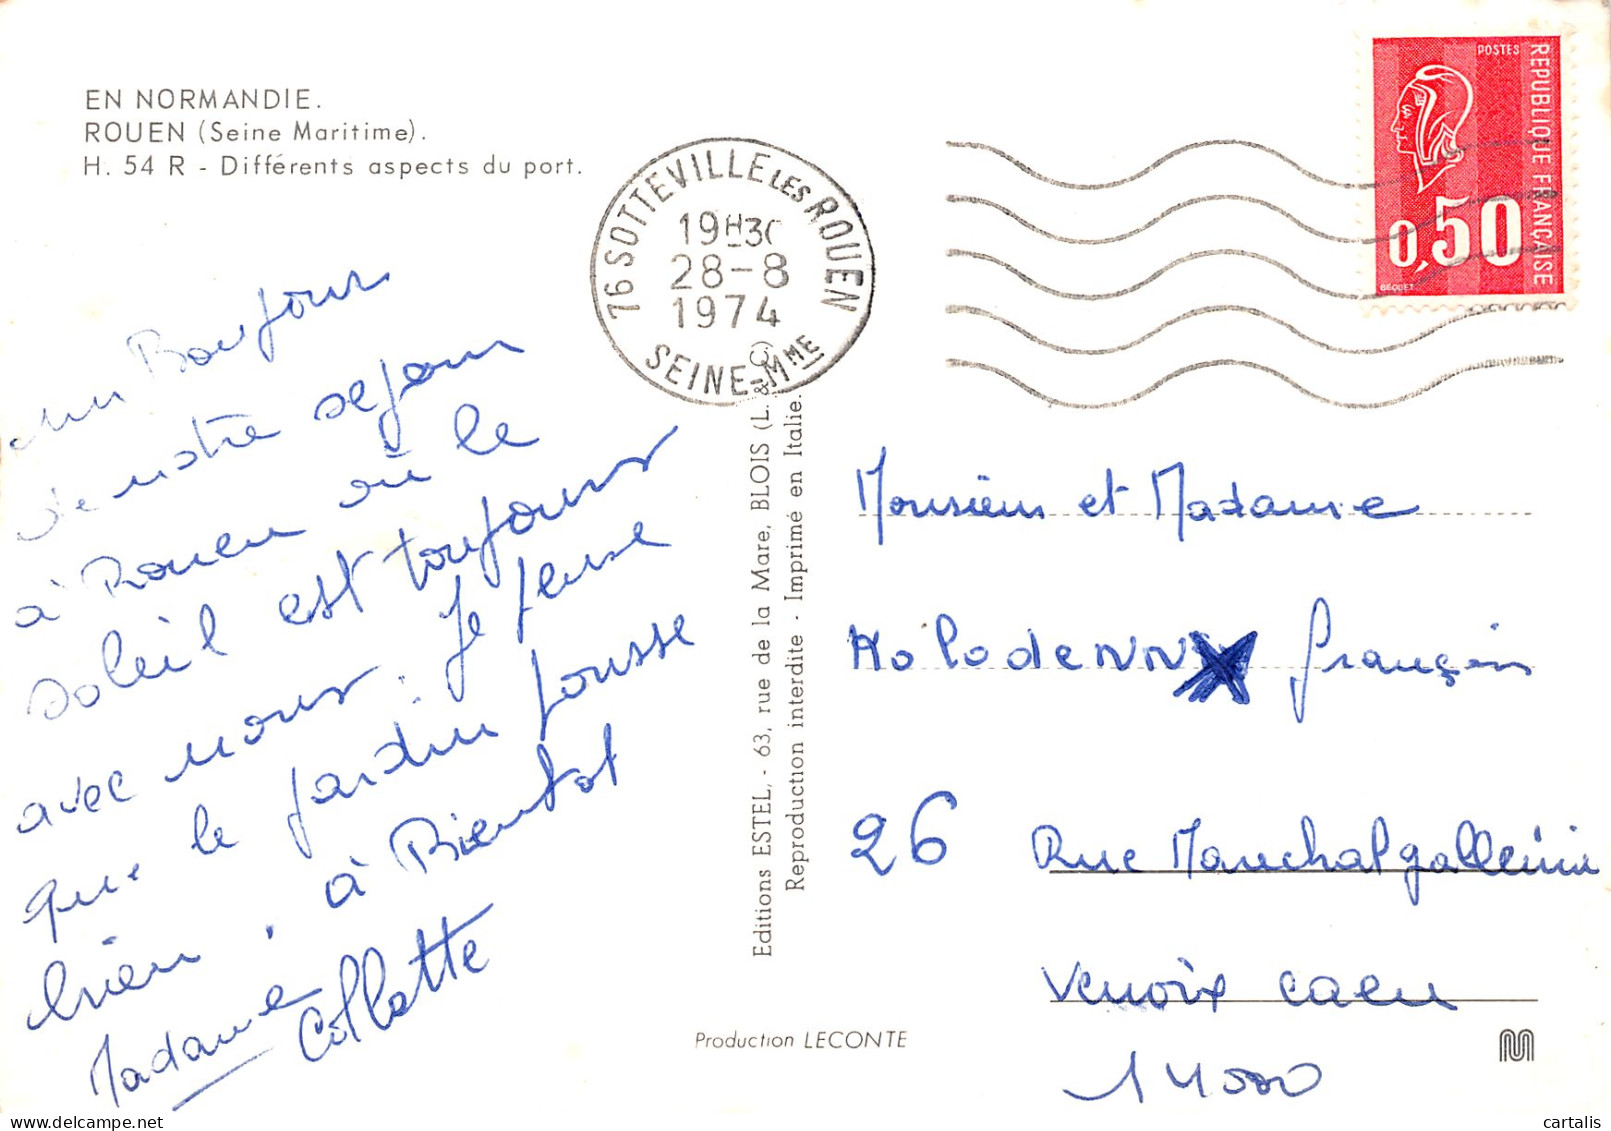 EN NORMANDIE.
ROUEN (Seine Maritime).
H. 54 R - Différents aspects du port.
76 SOTTEVILLE LES ROUEN
19H30
28-8
1974
SEINE-Mme
POSTES
REPUBLIQUE FRANÇAISE
0,50
BEQUET
un Bonjour
de notre sejour
à Rouen où le
soleil est toujours
avec nous. Je pense
que le jardin pousse
bien, à Bientot
Madame Collette
Editions ESTEL, - 63, rue de la Mare, BLOIS (L. & C.)
Reproduction interdite - Imprimé en Italie.
Production LECONTE
Monsieur et Madame
Kolodenn François
26 Rue Marechal galleini
Venoix Caen
14000
cartalis
www.delcampe.net